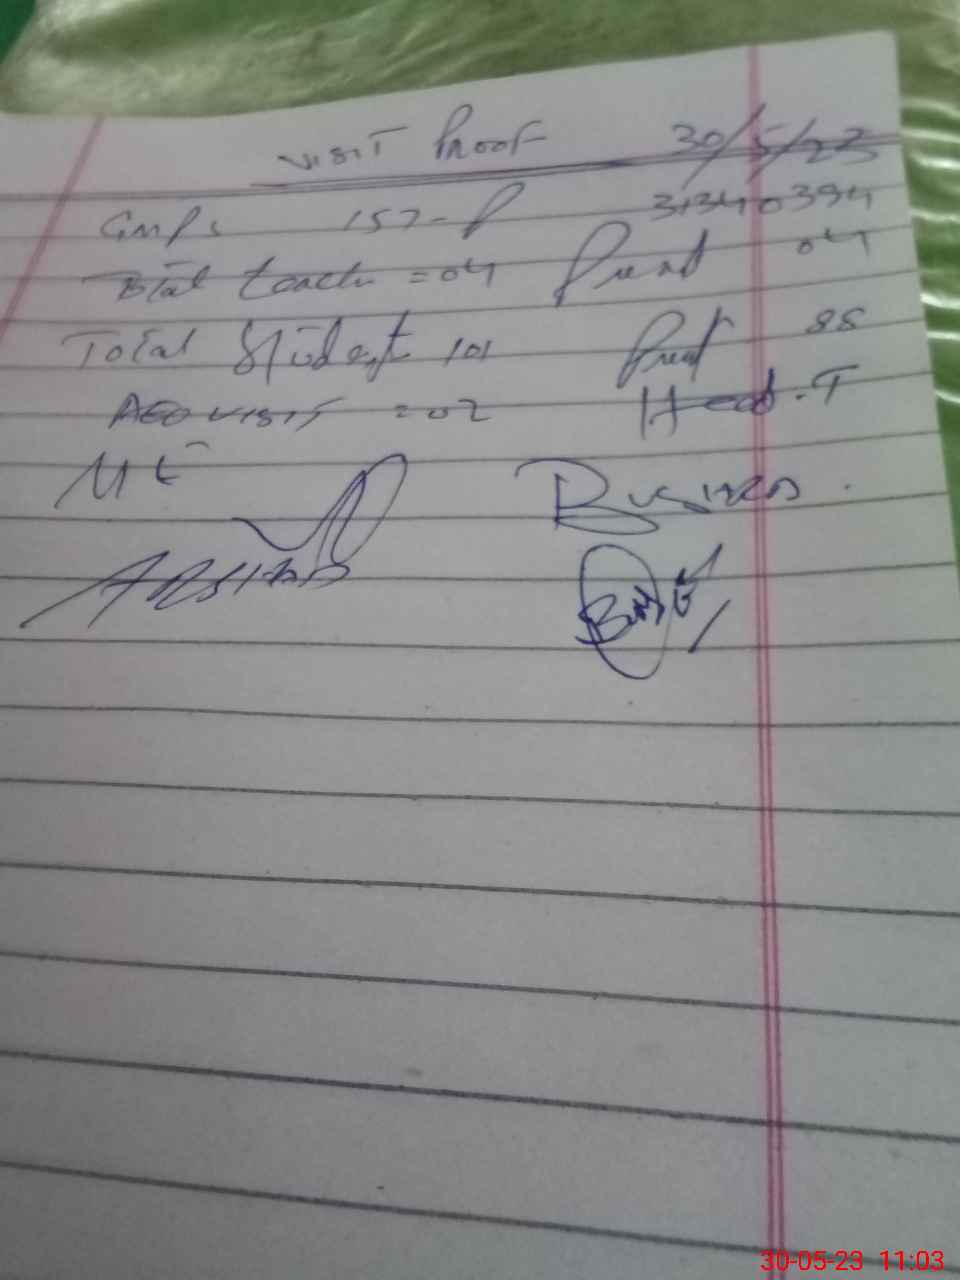 VISIT Proof 30/5/23
GMPS 157-P 31340394
Total teach = 04 Present 04
Total Student 101 Present 88
AEO VISIT = 02 Head.T
BUSHRA
ARSHAD
30-05-23 11:03